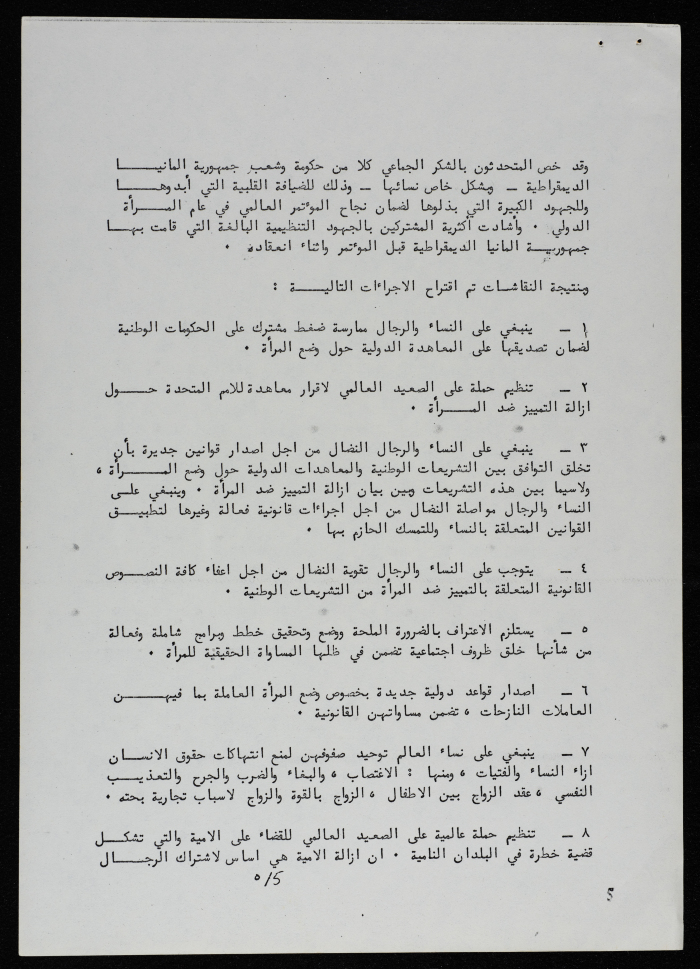 وقد خص المتحدثون بالشكر الجماعي كلا من حكومة وشعب جمهورية المانيا
الديمقراطية - وبشكل خاص نسائها - وذلك للضيافة القلبية التي أبدوها
وللجهود الكبيرة التي بذلوها لضمان نجاح المؤتمر العالمي في عام المرأة
الدولي . وأشادت أكثرية المشتركين بالجهود التنظيمية البالغة التي قامت بها
جمهورية المانيا الديمقراطية قبل المؤتمر واثناء انعقاده .
ونتيجة النقاشات تم اقتراح الاجراءات التالية :
١ - ينبغي على النساء والرجال ممارسة ضغط مشترك على الحكومات الوطنية
لضمان تصديقها على المعاهدة الدولية حول وضع المرأة .
٢ - تنظيم حملة على الصعيد العالمي لاقرار معاهدة للامم المتحدة حول
ازالة التمييز ضد المرأة .
٣ - ينبغي على النساء والرجال النضال من اجل اصدار قوانين جديرة بأن
تخلق التوافق بين التشريعات الوطنية والمعاهدات الدولية حول وضع المرأة ،
ولاسيما بين هذه التشريعات وبين بيان ازالة التمييز ضد المرأة . وينبغي على
النساء والرجال مواصلة النضال من اجل اجراءات قانونية فعالة وغيرها لتطبيق
القوانين المتعلقة بالنساء وللتمسك الحازم بها .
٤ - يتوجب على النساء والرجال تقوية النضال من اجل اعفاء كافة النصوص
القانونية المتعلقة بالتمييز ضد المرأة من التشريعات الوطنية .
٥ - يستلزم الاعتراف بالضرورة الملحة ووضع وتحقيق خطط وبرامج شاملة وفعالة
من شأنها خلق ظروف اجتماعية تضمن في ظلها المساواة الحقيقية للمرأة .
٦ - اصدار قواعد دولية جديدة بخصوص وضع المرأة العاملة بما فيهن
العاملات النازحات ، تضمن مساواتهن القانونية .
٧ - ينبغي على نساء العالم توحيد صفوفهن لمنع انتهاكات حقوق الانسان
ازاء النساء والفتيات ، ومنها : الاغتصاب ، والبغاء والضرب والجرح والتعذيب
النفسي ، عقد الزواج بين الاطفال ، الزواج بالقوة والزواج لاسباب تجارية بحته .
٨ - تنظيم حملة عالمية على الصعيد العالمي للقضاء على الامية والتي تشكل
قضية خطرة في البلدان النامية . ان ازالة الامية هي اساس لاشتراك الرجال
٥/5
5